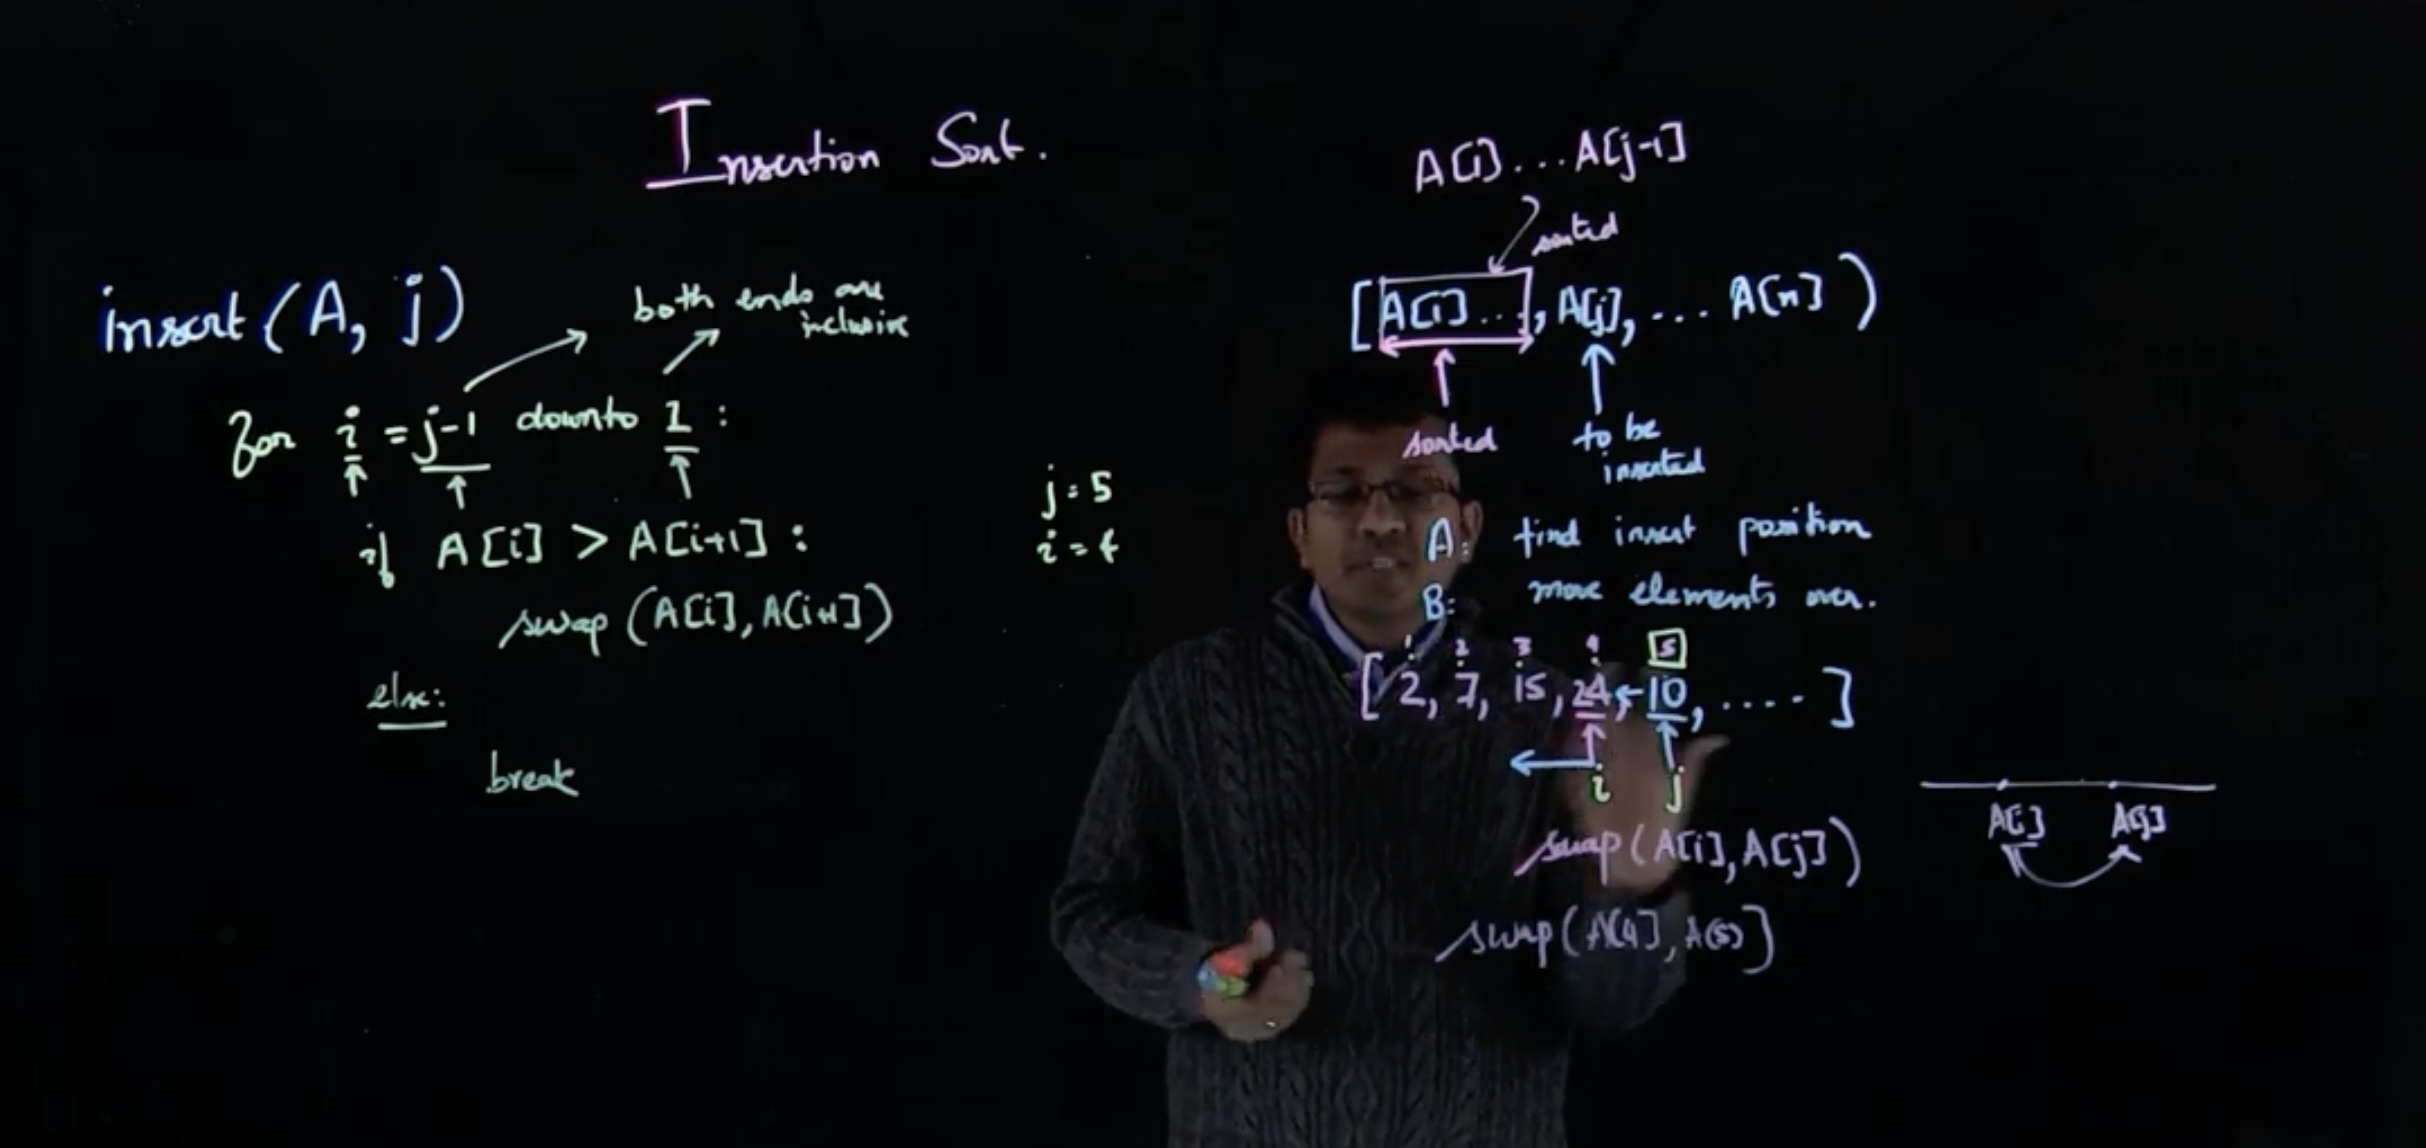 Insertion Sort.
insert(A, j)
both ends are
inclusive
for i = j-1 downto 1 :
if A[i] > A[i+1] :
swap (A[i], A[i+1])
else:
break
j = 5
i = 4
A[1] ... A[j-1]
sorted
[A[1] ..., A[j], ... A[n])
sorted
to be
inserted
A: find insert position
B: move elements over.
1 2 3 4 5
[2, 7, 15, 24, 10, ....]
i j
swap (A[i], A[j])
swap (A[4], A(5)]
A[i] A[j]